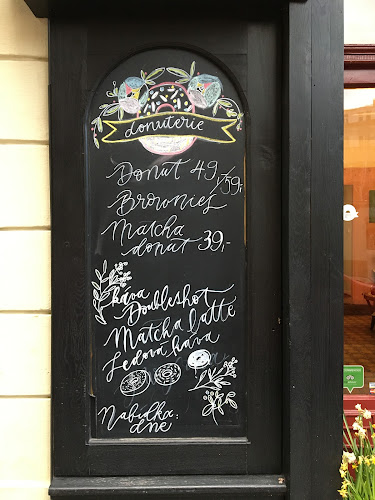 donuterie
Donut 49,-/59,-
Brownies
Matcha
donut 39,-
káva
Doubleshot
Matcha latte
Ledová káva
Nabídka:
dne